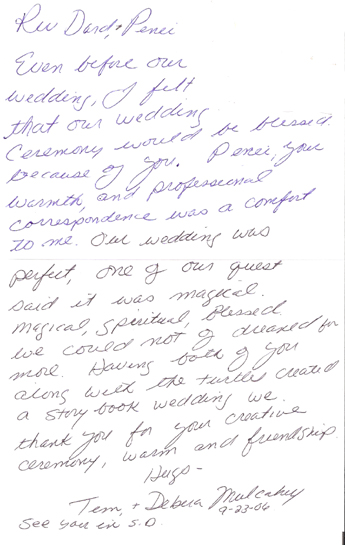 Rev Dard, + Penei
Even before our
wedding, I felt
that our wedding
Ceremony would be blessed
because of you. Penei, your
warmth, and professional
correspondence was a comfort
to me. Our wedding was
perfect, one of our guest
said it was magical.
magical, spiritual, blessed.
we could not of dreamed for
more. Having both of you
along with the turtles created
a story book wedding we
thank you for your creative
ceremony, warm and friendship.
Hugs -
Tem, + Debera Mulcahey
9-23-06
See you in S.D.